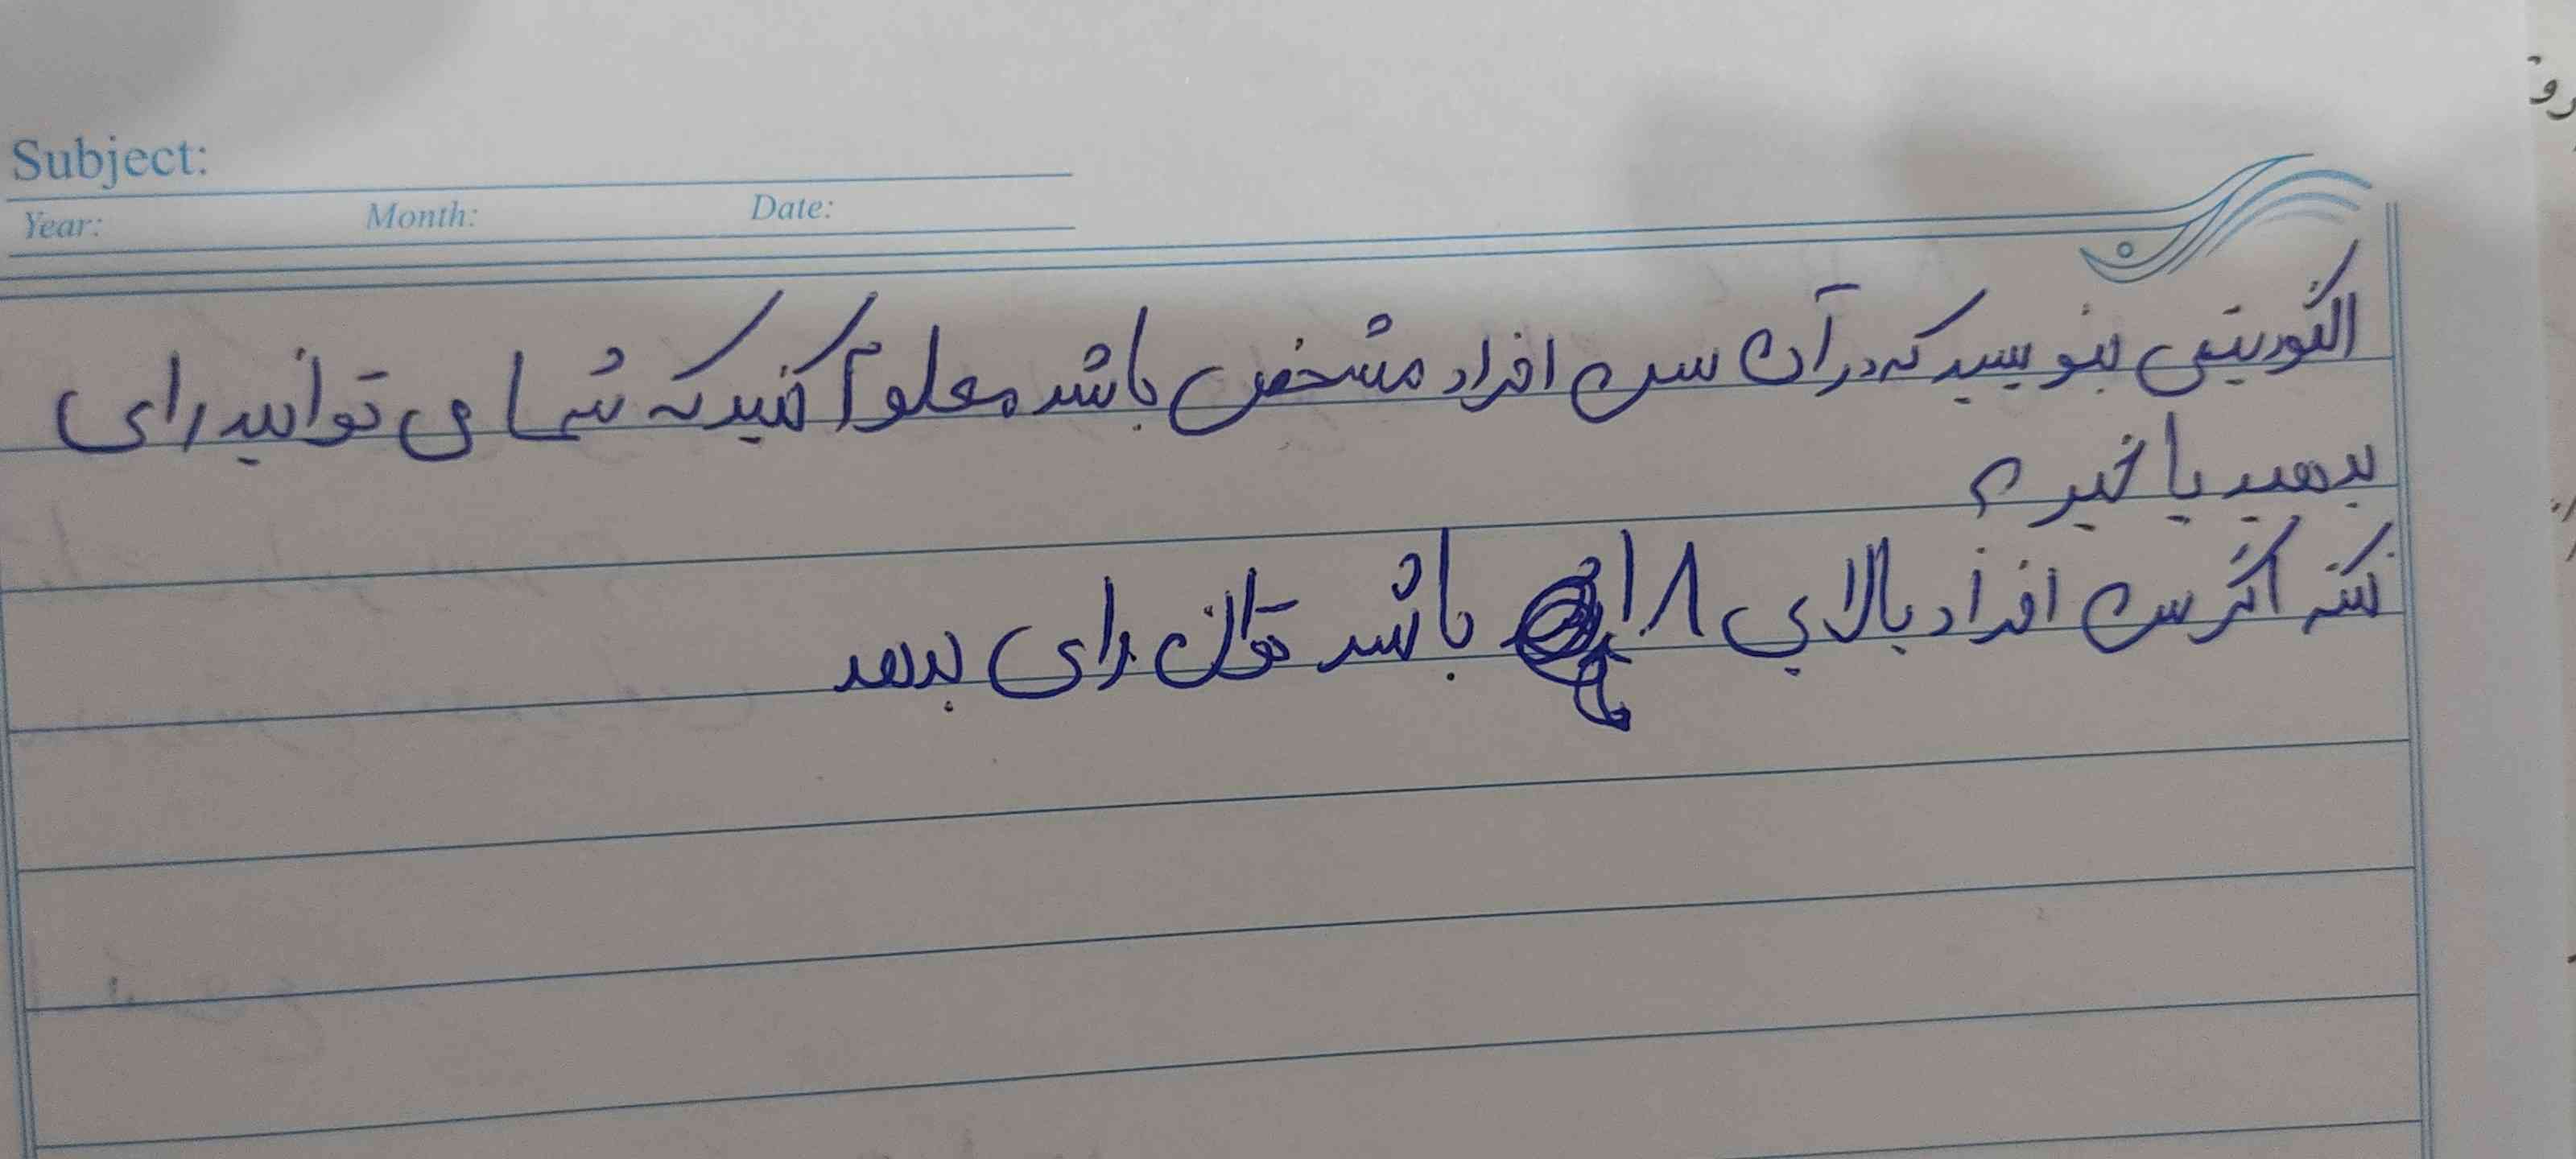 Subject:
Year: Month: Date:
الگوریتمی بنویسید که در آن سن افراد مشخص باشد معلوم کنید که شما می توانید رای
بدهید یا خیر؟
نکته اگر سن افراد بالای ۱۸ باشد توان رای بدهد